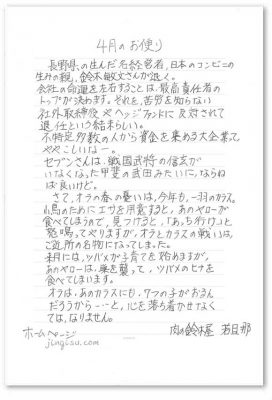 4月のお便り
長野県の生んだ名経営者、日本のコンビニの
生みの親、鈴木敏文さんが退く。
会社の命運を左右することは、最高責任者の
トップが決めます。それを、苦労を知らない
社外取締役やヘッジファンドに反対されて
退任という結末らしい。
不特定多数の人から資金を集める大企業て
ややこしいなー。
セブンさんは、戦国武将の信玄が
いなくなった甲斐の武田みたいに、ならね
ば良いけど。
さて、オラの春の憂いは、今年も、一羽のカラス。
小鳥のためにエサを用意すると、あのヤローが
食べてしまうので、見つけると、「あっち行け」と
怒鳴ってやりますが、オラとカラスの戦いは、
ご近所の名物になってしまった。
来月には、ツバメが子育てを始めますが、
あのヤローは、巣を襲って、ツバメのヒナを
食べてしまいます。
オラは、あのカラスにも、7つの子がおるん
だろうから……と、心を落ち着かせなく
ては、なりません。
肉の鈴木屋 若旦那
ホームページ
jingisu.com